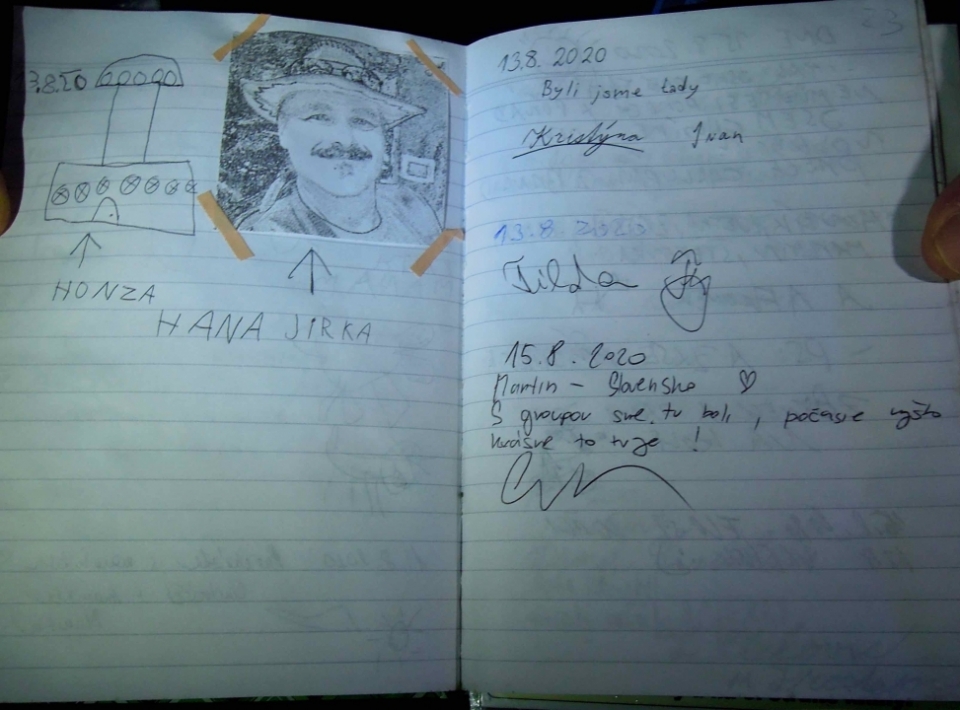 13.8.20
HONZA
HANA JIRKA
13.8. 2020
Byli jsme tady
Kristýna Ivan
13.8. 2020
Tilda
15.8. 2020
Martin - Slovensko ♡
S groupov sme tu boli, počasie vyšlo
krásne to tu je !